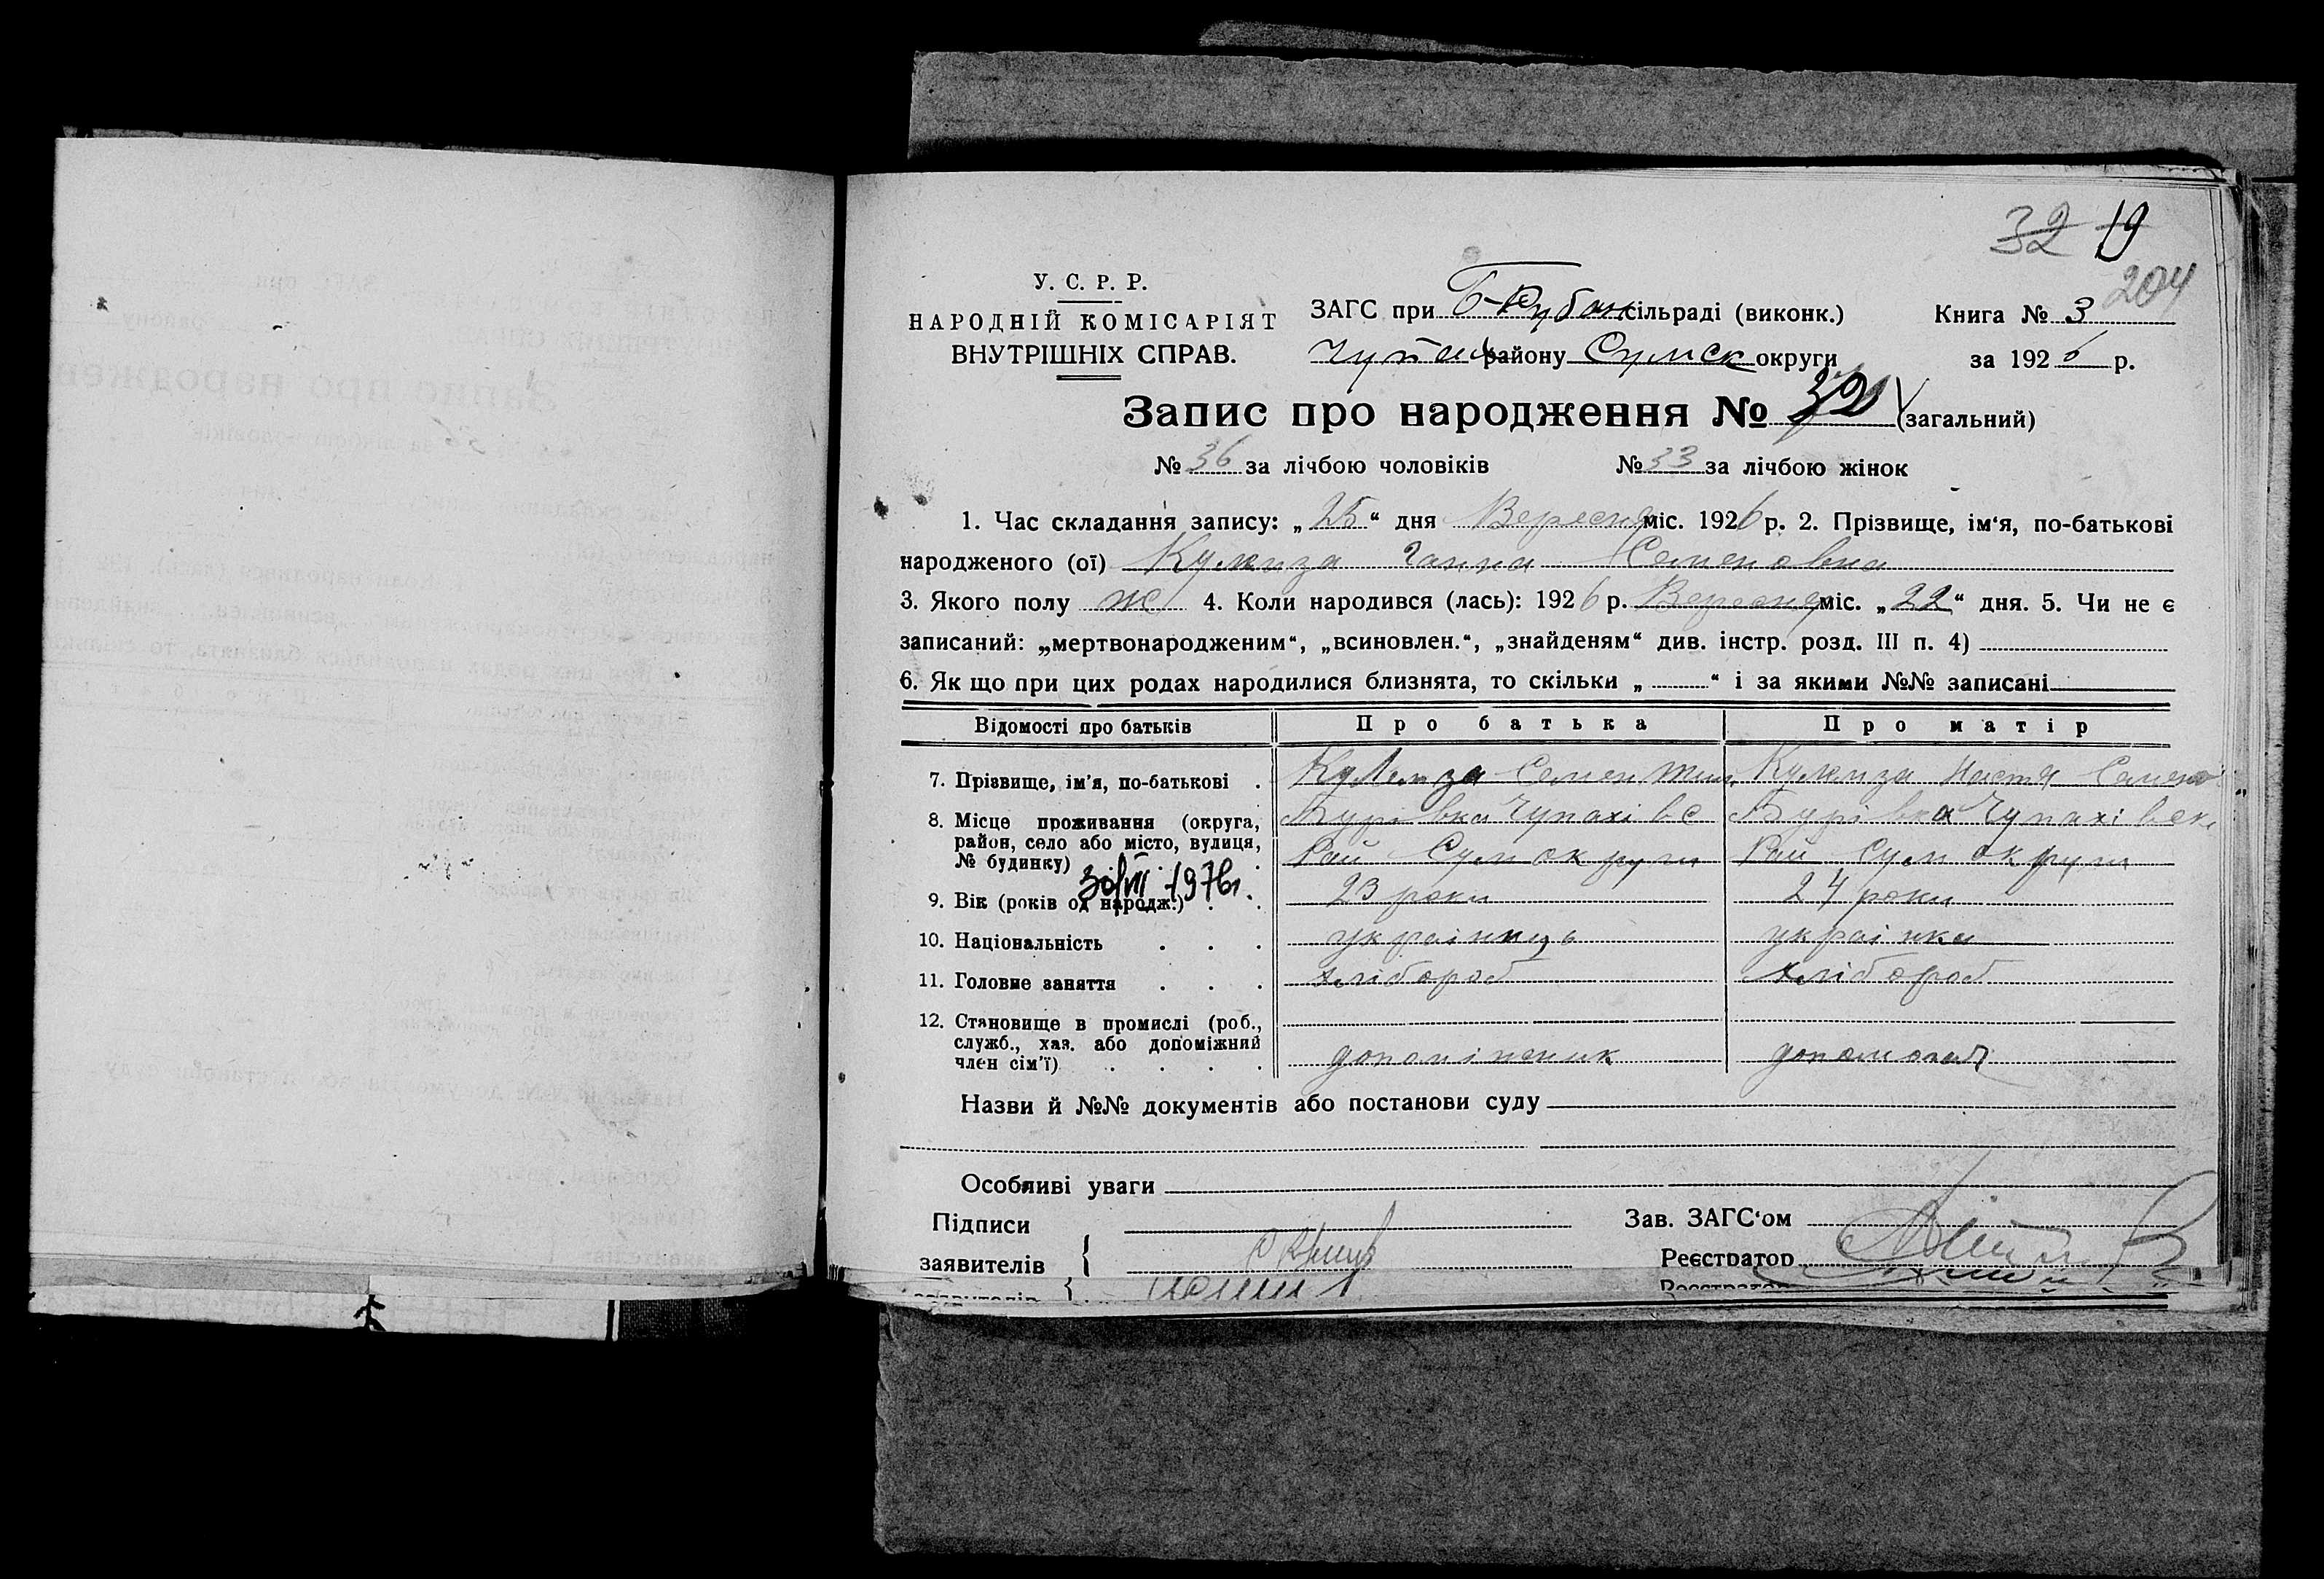 32 19
204
У. С. Р. Р.
НАРОДНІЙ КОМІСАРІЯТ
ВНУТРІШНІХ СПРАВ.
ЗАГС при Б-Рубан сільраді (виконк.)
Книга № 3
району Сумск округи
за 1926 р.
Запис про народження № (загальний)
№ 36 за лічбою чоловіків № 33 за лічбою жінок
1. Час складання запису: „25“ дня Вересня міс. 1926 р. 2. Прізвище, ім‘я, по-батькові
народженого (ої) Ганна Семеновна
3. Якого полу ж 4. Коли народився (лась): 1926 р. Вересня міс. „22“ дня. 5. Чи не є
записаний: „мертвонародженим“, „всиновлен.“, „знайденям“ див. інстр. розд. III п. 4)
6. Як що при цих родах народилися близнята, то скільки „ “ і за якими №№ записані
Відомості про батьків Про батька Про матір
7. Прізвище, ім'я, по-батькові . Семен Настя
8. Місце проживання (округа, район, село або місто, вулиця, № будинку) .
Бурівка Чупахівс Бурівка Чупахівск
Рай Сум округи Рай Сум округи
30/VII 1976г.
9. Вік (років од народж.) . . 23 роки 24 роки
10. Національність . . . українець українка
11. Головне заняття . . . хлібороб хлібороб
12. Становище в промислі (роб., служб., хаз. або допоміжний член сім'ї) . . . .
Назви й №№ документів або постанови суду
Особливі уваги
Підписи
заявителів {
Зав. ЗАГС‘ом
Реєстратор
заявителів {
Реєстратор